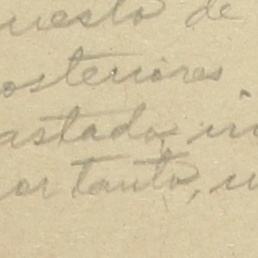 uesto de
osteriores
astado, in
or tanto, u